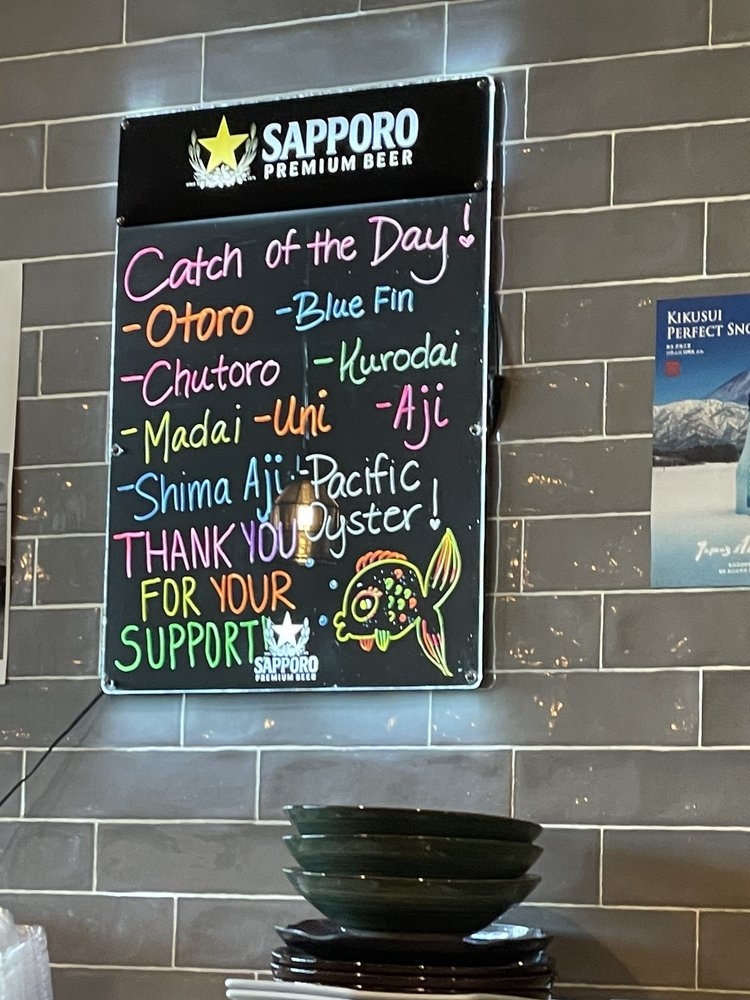 SAPPORO
PREMIUM BEER
Catch of the Day!
-Otoro -Blue Fin
-Chutoro -Kurodai
-Madai -Uni -Aji
-Shima Aji -Pacific
Oyster!
THANK YOU
FOR YOUR
SUPPORT
SAPPORO
PREMIUM BEER
KIKUSUI
PERFECT SNO